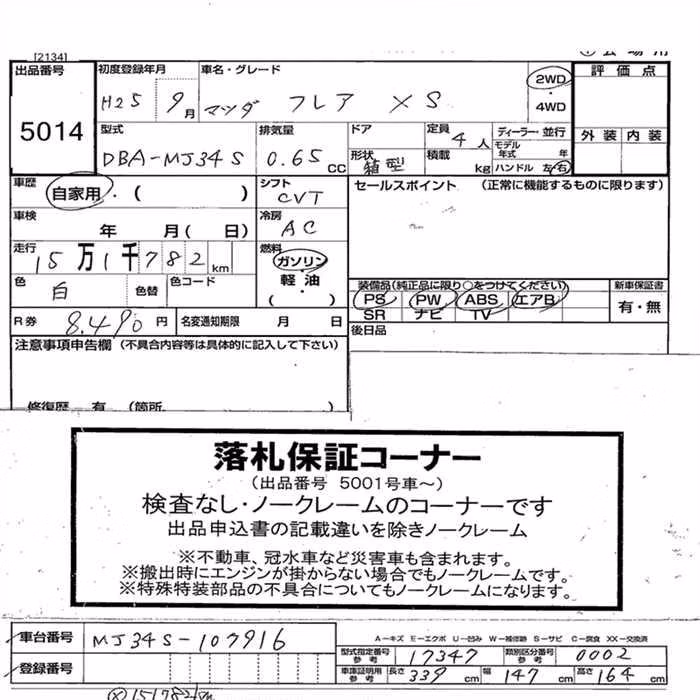 [2134]
出品番号 初度登録年月 車名・グレード 評価点
5014 H25 9月 マツダ フレア XS 2WD・4WD
型式 排気量 ドア 定員 ディーラー・並行 外装 内装
DBA-MJ34S 0.65 CC 形状 箱型 4人 積載 kg モデル年式 年 ハンドル 左・右
車歴 自家用・( ) シフト CVT セールスポイント (正常に機能するものに限ります)
車検 年 月( 日) 冷房 AC
走行 15万1千782km 燃料 ガソリン・軽油・( )
色 白 色替 色コード
装備品(純正品に限り○をつけてください) 新車保証書
PS PW ABS エアB 有・無
SR ナビ TV
R券 8,490円 名変通知期限 月 日 後日品
注意事項申告欄(不具合内容等は具体的に記入して下さい)
修復歴 有 (箇所 )
落札保証コーナー
(出品番号 5001号車〜)
検査なし・ノークレームのコーナーです
出品申込書の記載違いを除きノークレーム
※不動車、冠水車など災害車も含まれます。
※搬出時にエンジンが掛からない場合でもノークレームです。
※特殊特装部品の不具合についてもノークレームになります。
A-キズ E-エクボ U-凹み W-補修跡 S-サビ C-腐食 XX-交換済
車台番号 MJ34S-107916 型式指定番号参考 17347 類別区分番号参考 0002
登録番号 車庫証明用参考 長さ 339cm 幅 147cm 高さ 164cm
151782km